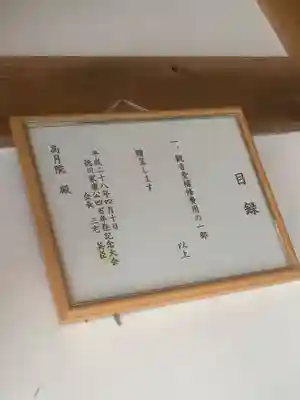 目録
一、観音堂補修費用の一部
以上
贈呈します
平成二十八年四月十日
徳川家康公四百年祭記念大会
会長 三宅 英臣
高月院 殿